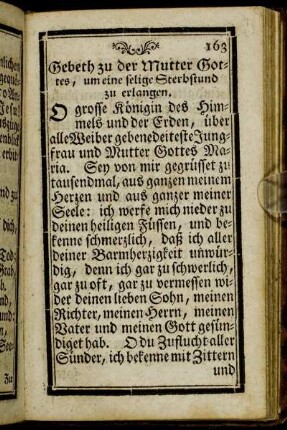 163
Gebeth zu der Mutter Got-
tes, um eine selige Sterbstund
zu erlangen.
O grosse Königin des Him-
mels und der Erden, über
alle Weiber gebenedeiteste Jung-
frau und Mutter Gottes Ma-
ria. Sey von mir gegrüsset zu
tausendmal, aus ganzen meinem
Herzen und aus ganzer meiner
Seele: ich werfe mich nieder zu
deinen heiligen Füssen, und be-
kenne schmerzlich, daß ich aller
deiner Barmherzigkeit unwür-
dig, denn ich gar zu schwerlich,
gar zu oft, gar zu vermessen wi-
der deinen lieben Sohn, meinen
Richter, meinen Herrn, meinen
Vater und meinen Gott gesün-
diget hab. O du Zuflucht aller
Sünder, ich bekenne mit Zittern
und